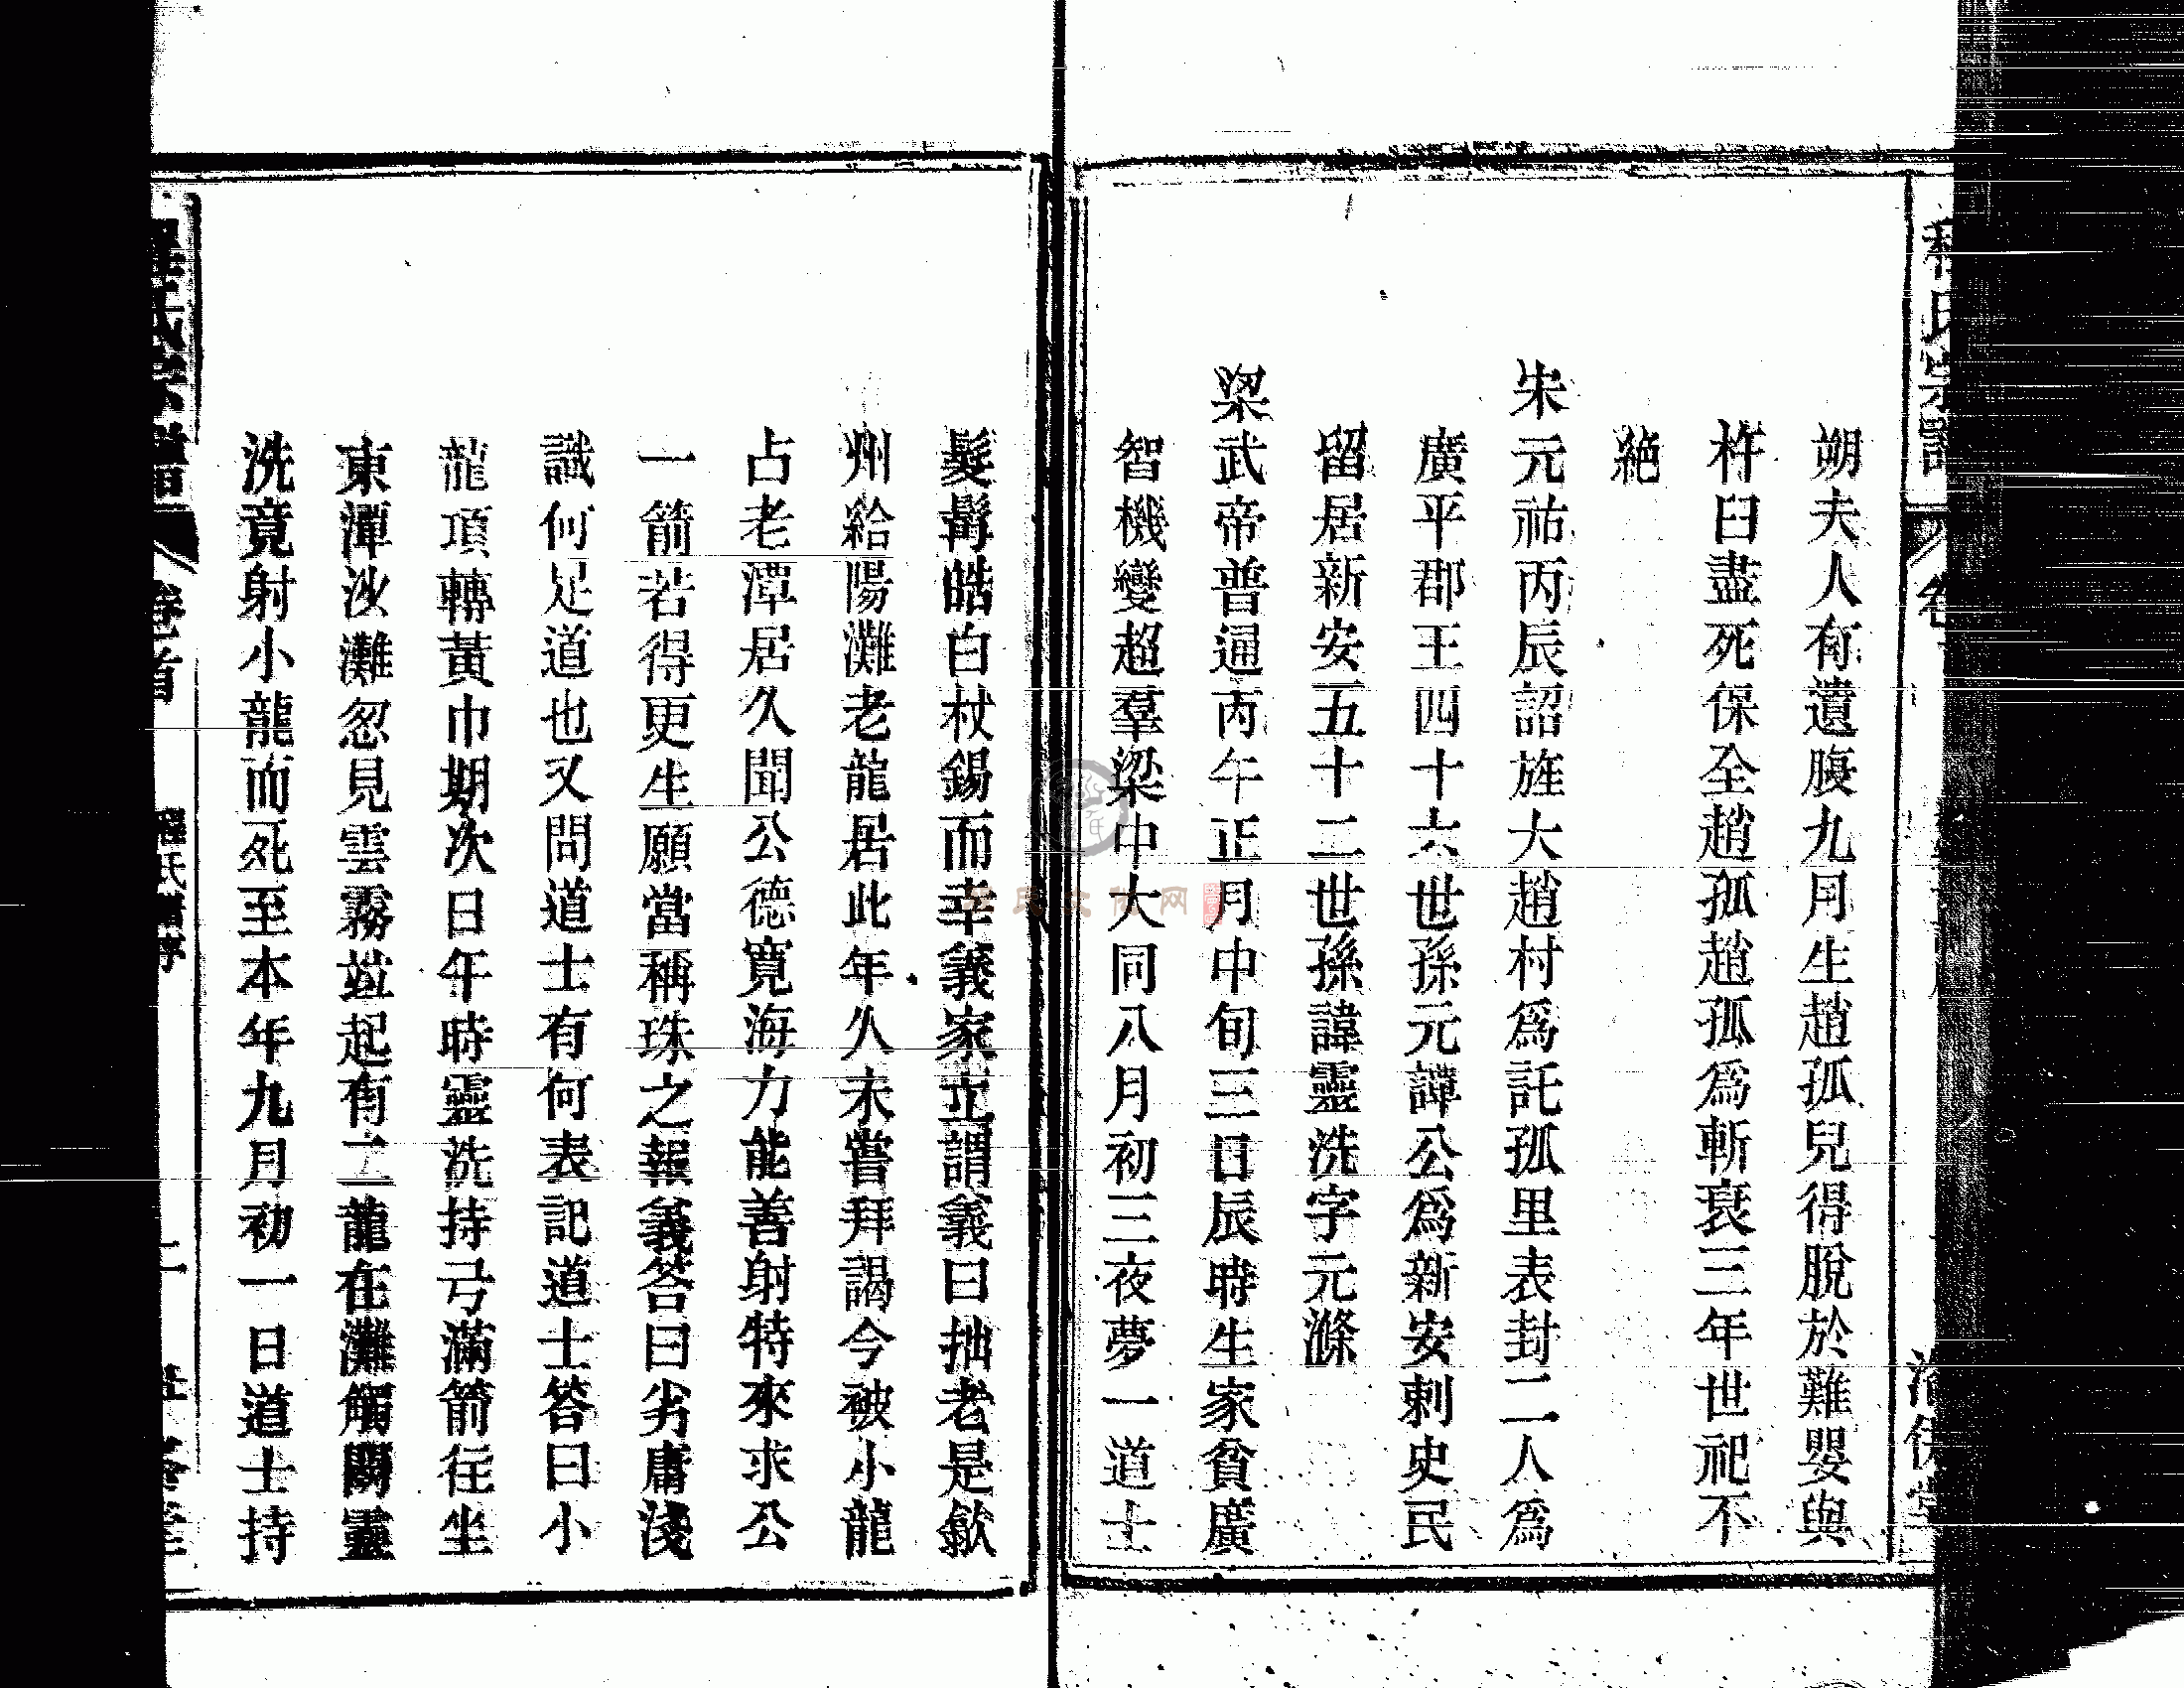 朔夫人有遺腹九月生趙孤兒得脫於難嬰與
杵臼盡死保全趙孤趙孤爲斬衰三年世祀不
絶
宋元祐丙辰詔旌大趙村爲託孤里表封二人爲
廣平郡王四十六世孫元譚公爲新安刺史民
留居新安五十二世孫諱靈洗字元滌
梁武帝普通丙午正月中旬三日辰時生家貧廣
智機變超羣梁中大同八月初三夜夢一道士
髮髯皓白杖錫而幸義家立謂義曰拙老是歙
州給陽灘老龍居此年久未嘗拜謁今被小龍
占老潭居久聞公德寬海力能善射特來求公
一箭若得更生願當稱珠之報義答曰劣庸淺
識何足道也又問道士有何表記道士答曰小
龍項轉黃巾期次日午時靈洗持弓滿箭在坐
東潭沙灘忽見雲霧並起有二龍在灘觸鬬靈
洗竟射小龍而死至本年九月初一日道士持
卷之首